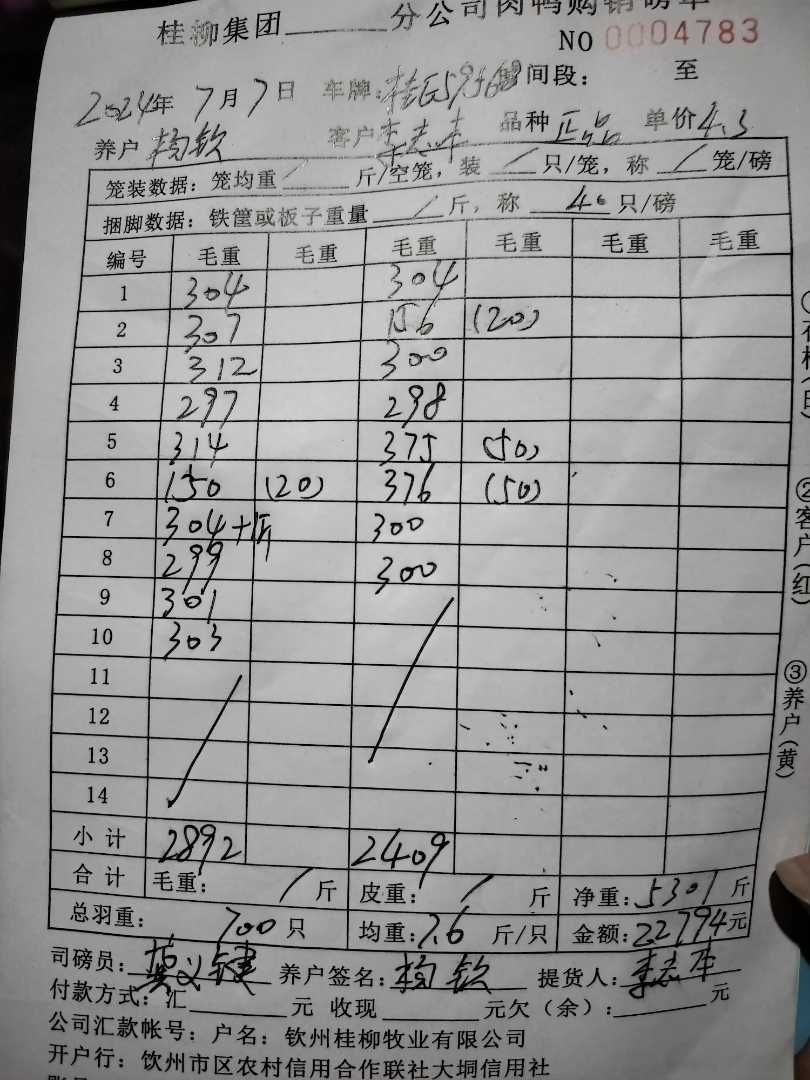 桂柳集团______分公司肉鸭购销磅单
NO 0004783
2024年 7月7日 车牌: 间段: 至
养户 杨钦 客户 李志本 品种 正品 单价 4.3
笼装数据: 笼均重 / 斤/空笼, 装 / 只/笼, 称 / 笼/磅
捆脚数据: 铁筐或板子重量 / 斤, 称 40 只/磅
编号 毛重 毛重 毛重 毛重 毛重 毛重
1 304 304
2 307 156 (20)
3 312 300
4 297 298
5 314 375 (50)
6 150 (20) 376 (50)
7 304+1斤 300
8 299 300
9 301
10 303
11
12
13
14
小计 2892 2409
合计 毛重: / 斤 皮重: / 斤 净重: 5301 斤
总羽重: 700 只 均重: 7.6 斤/只 金额: 22794 元
司磅员: 养户签名: 杨钦 提货人: 李志本
付款方式: 汇______元 收现______元欠(余):______元
公司汇款帐号: 户名: 钦州桂柳牧业有限公司
开户行: 钦州市区农村信用合作联社大垌信用社
②客户(红)
③养户(黄)